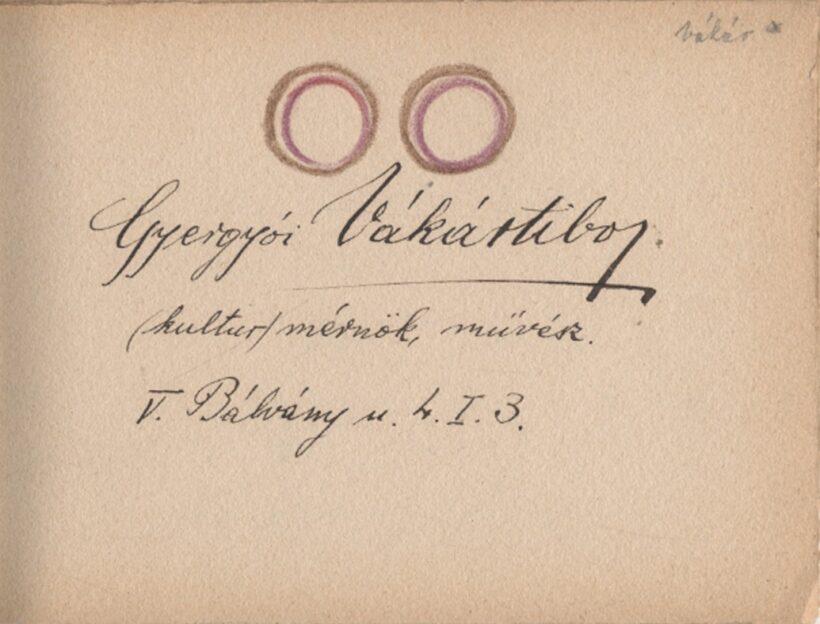 Vákár *
Gyergyói Vákártibor
(kultur) mérnök, müvész.
V. Bálvány u. 4. I. 3.